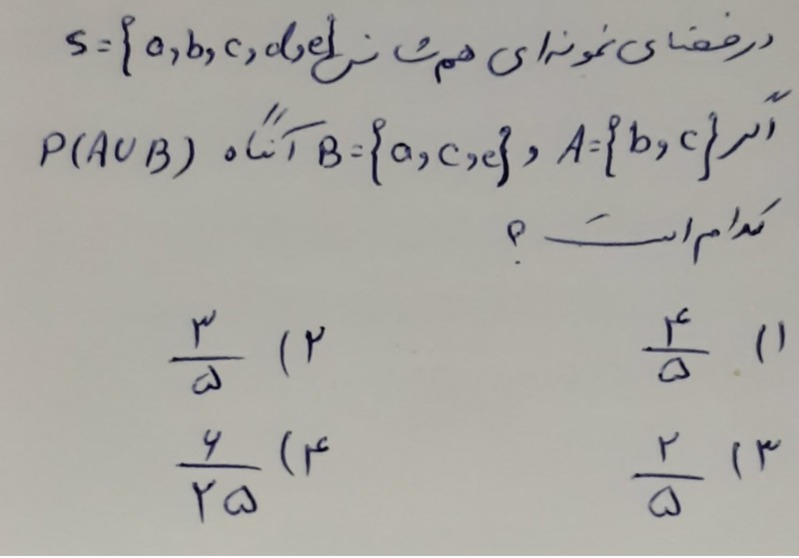 در فضای نمونه‌ای هم شانس S={a,b,c,d,e}
اگر A={b,c} و B={a,c,e} آنگاه P(A∪B)
کدام است ؟
۱) ۴/۵ ۲) ۳/۵
۳) ۲/۵ ۴) ۶/۲۵